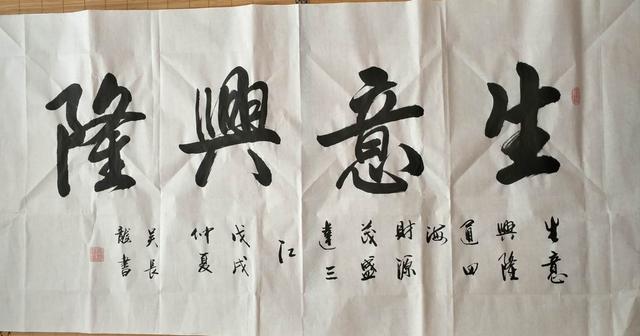 生意興隆
生意
興隆
通四
海
財源
茂盛
達三
江
戊戌
仲夏
吴長
龍書